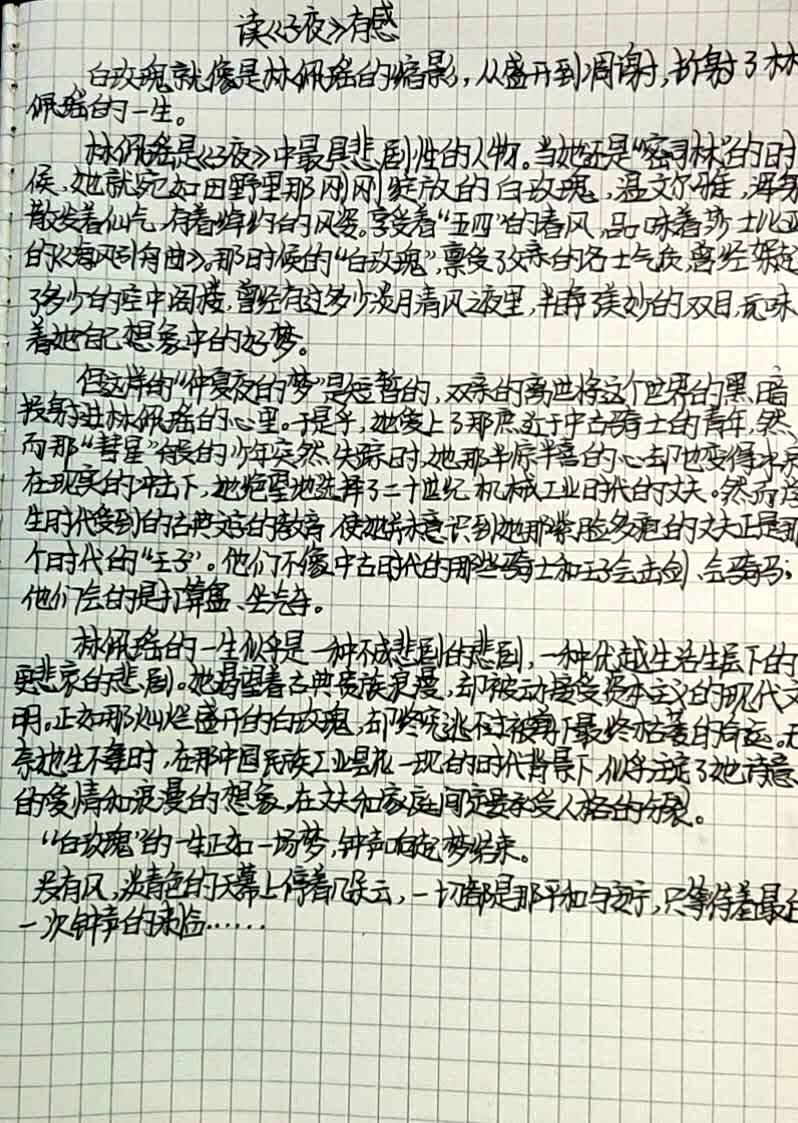 读《子夜》有感
白玫瑰就像是林佩瑶的缩影，从盛开到凋谢，折射了林
佩瑶的一生。
林佩瑶是《子夜》中最具悲剧性的人物。当她还是“密司林”的时
候，她就宛如田野里那刚刚绽放的白玫瑰，温文尔雅，浑身
散发着仙气，有着绰约的风姿。享受着“五四”的春风，品味着莎士比亚
的《海风引舟曲》。那时候的“白玫瑰”，禀受了父亲的名士气质，曾经架起
了多少的空中阁楼，曾经有过多少淡月清风之夜里，半睁美妙的双目，玩味
着她自己想象中的好梦。
但这样的“仲夏夜的梦”是短暂的，双亲的离世将这个世界的黑暗
投射进林佩瑶的心里。于是乎，她爱上了那庶近于中古骑士的青年，然
而那“彗星”般的少年突然失踪时，她那半惊半喜的心却也变得冰凉
在现实的冲击下，她绝望地选择了二十世纪机械工业时代的丈夫。然而
生时代受到的古典文字的教育，使她并未意识到她那紫脸多疱的丈夫正是那
个时代的“王子”。他们不像中古时代的那些骑士和王子会击剑、会骑马；
他们会的是打算盘、坐汽车。
林佩瑶的一生似乎是一种不成悲剧的悲剧，一种优越生活生层下的
更悲哀的悲剧。她渴望着古典贵族浪漫，却被动接受资本主义的现代文
明。正如那灿烂盛开的白玫瑰，却终究逃不过被 下最终枯萎的命运。无
奈她生不逢时，在那中国民族工业昙花一现的时代背景下，似乎注定了她诗意
的爱情和浪漫的想象，在丈夫和家庭间 要承受人格的分裂。
“白玫瑰”的一生正如一场梦，钟声响起梦结束。
没有风，淡青色的天幕上停着几朵云，一切都是那平和与安宁，只等待着最后
一次钟声的来临……